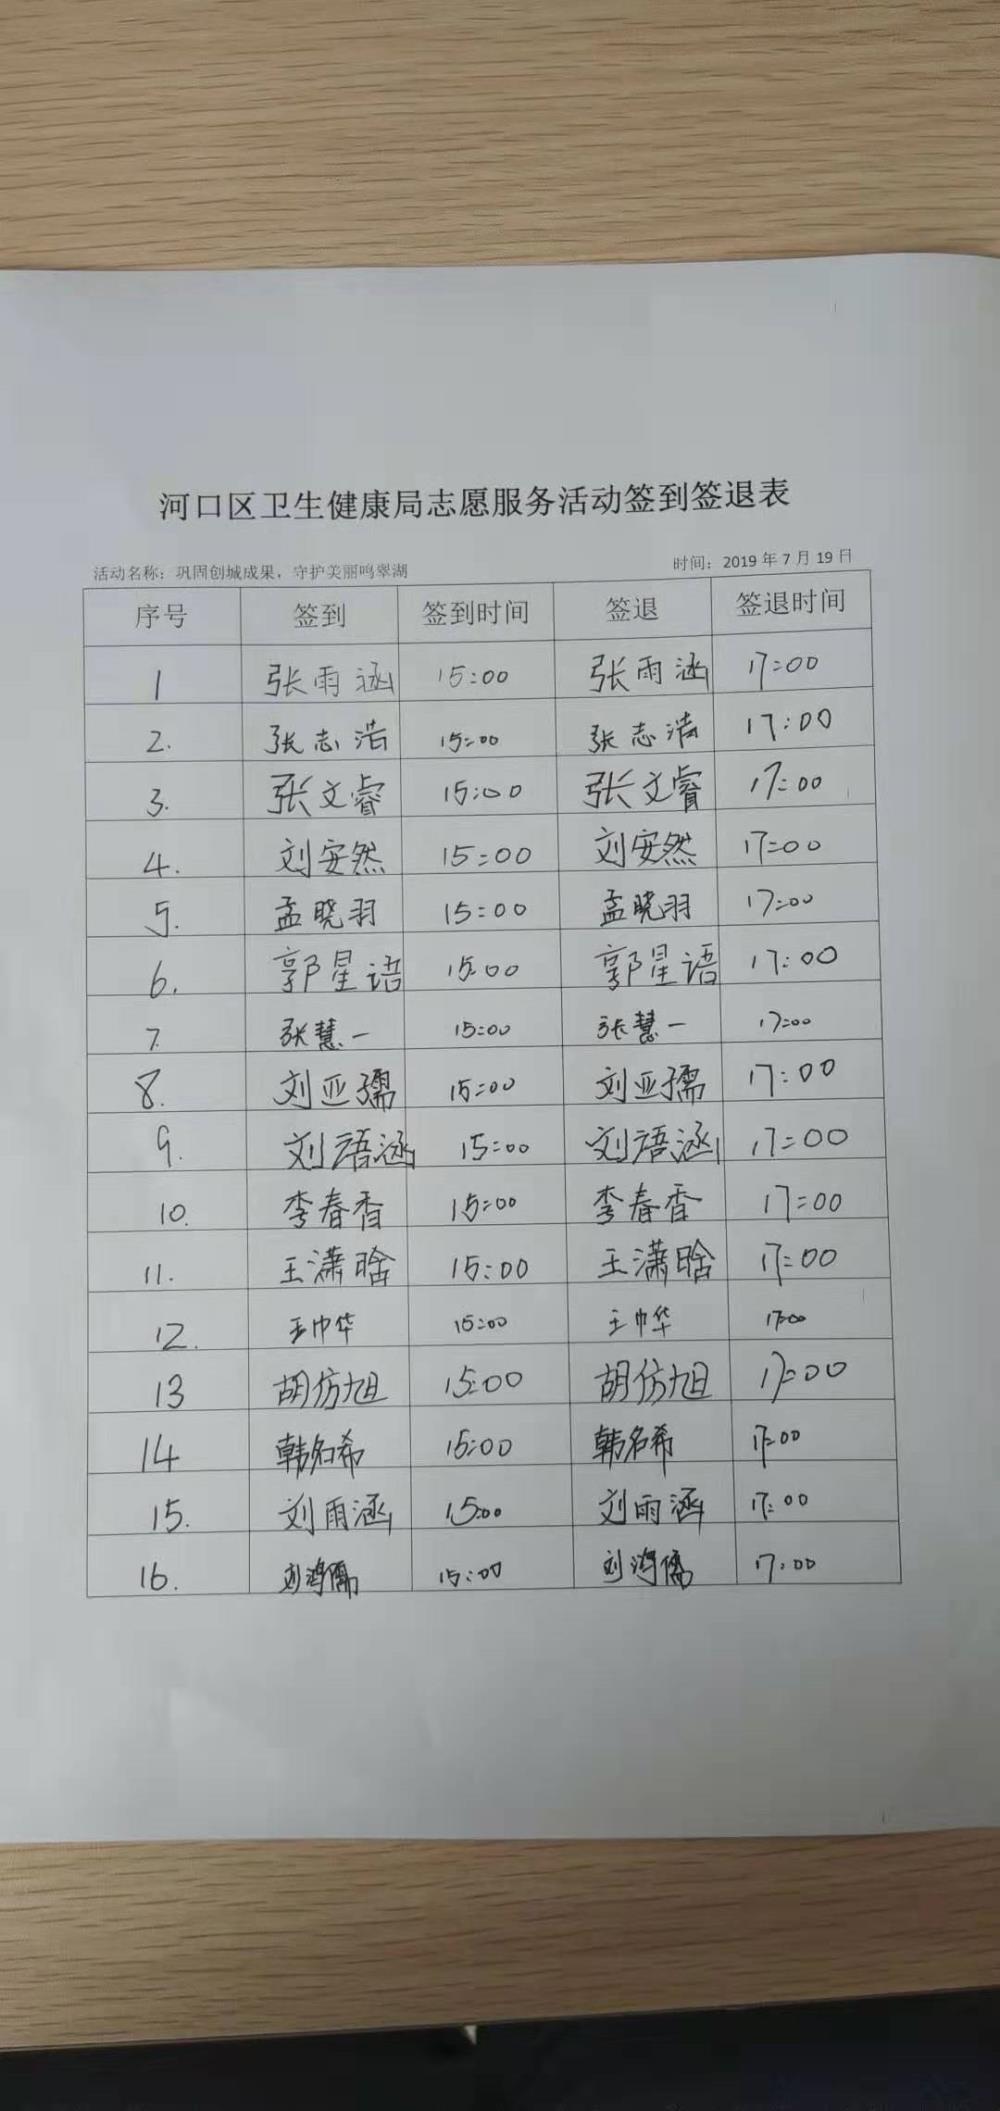 河口区卫生健康局志愿服务活动签到签退表
活动名称：巩固创城成果，守护美丽鸣翠湖 时间：2019年7月19日
序号 签到 签到时间 签退 签退时间
1 张雨涵 15:00 张雨涵 17:00
2. 张志浩 15:00 张志浩 17:00
3. 张文睿 15:00 张文睿 17:00
4. 刘安然 15:00 刘安然 17:00
5. 孟晓羽 15:00 孟晓羽 17:00
6. 郭星语 15:00 郭星语 17:00
7. 张慧一 15:00 张慧一 17:00
8. 刘亚孺 15:00 刘亚孺 17:00
9. 刘语涵 15:00 刘语涵 17:00
10. 李春香 15:00 李春香 17:00
11. 王潇晗 15:00 王潇晗 17:00
12. 王巾华 15:00 王巾华 17:00
13 胡仿旭 15:00 胡仿旭 17:00
14 韩名希 15:00 韩名希 17:00
15. 刘雨涵 15:00 刘雨涵 17:00
16. 刘鸿儒 15:00 刘鸿儒 17:00